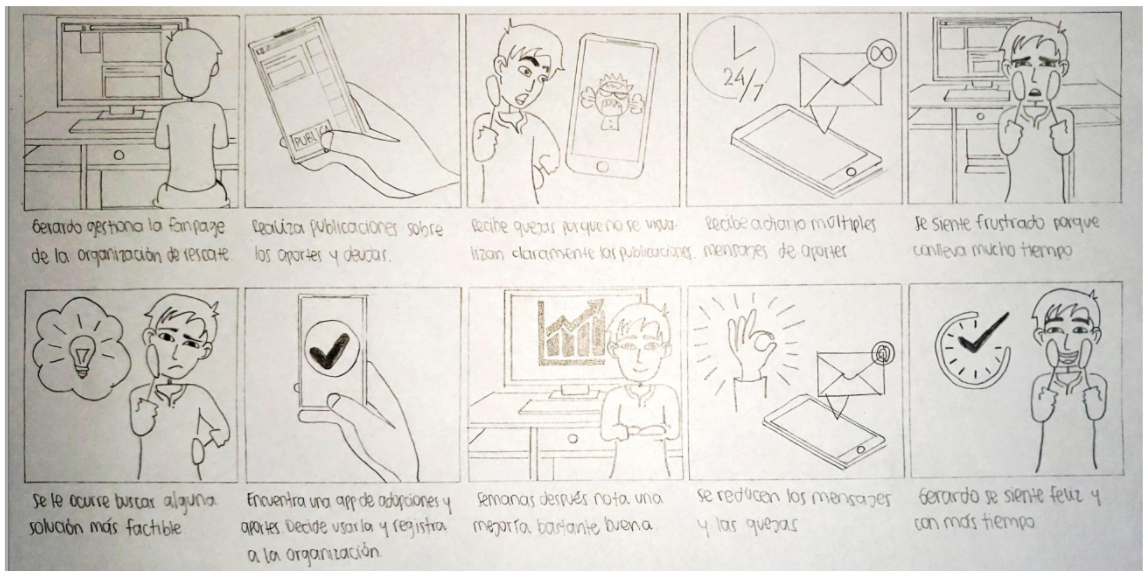 PUBLI
24/7
∞
Gerardo gestiona la fanpage
de la organización de rescate.
Realiza publicaciones sobre
los aportes y deudas.
Recibe quejas porque no se visua-
lizan claramente las publicaciones.
Recibe a diario múltiples
mensajes de aportes
Se siente frustrado porque
conlleva mucho tiempo
@
Se le ocurre buscar alguna
solución más factible.
Encuentra una app de adopciones y
aportes. Decide usarla y registra
a la organización.
Semanas después nota una
mejoría bastante buena.
Se reducen los mensajes
y las quejas
Gerardo se siente feliz y
con más tiempo